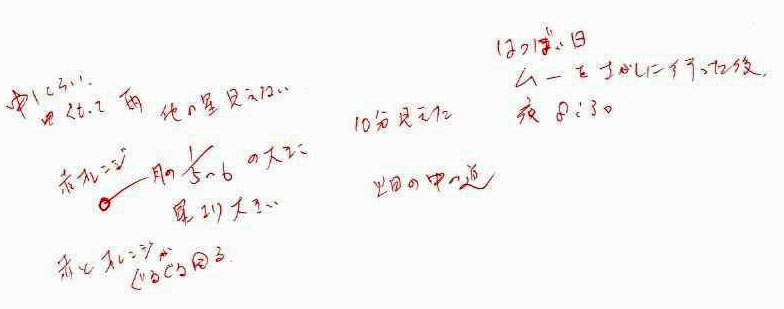 くもって 雨 他の星見えない
赤オレンジ
月の 1/5~6 の大きさ
星より大きい
赤とオレンジが
ぐるぐる回る
10分見えた
の中の道
日
ムーをさがしに行った後
夜 8:30